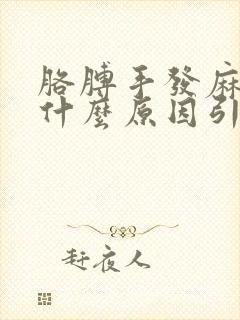 胳膊手發麻
什麼原因引
赶夜人